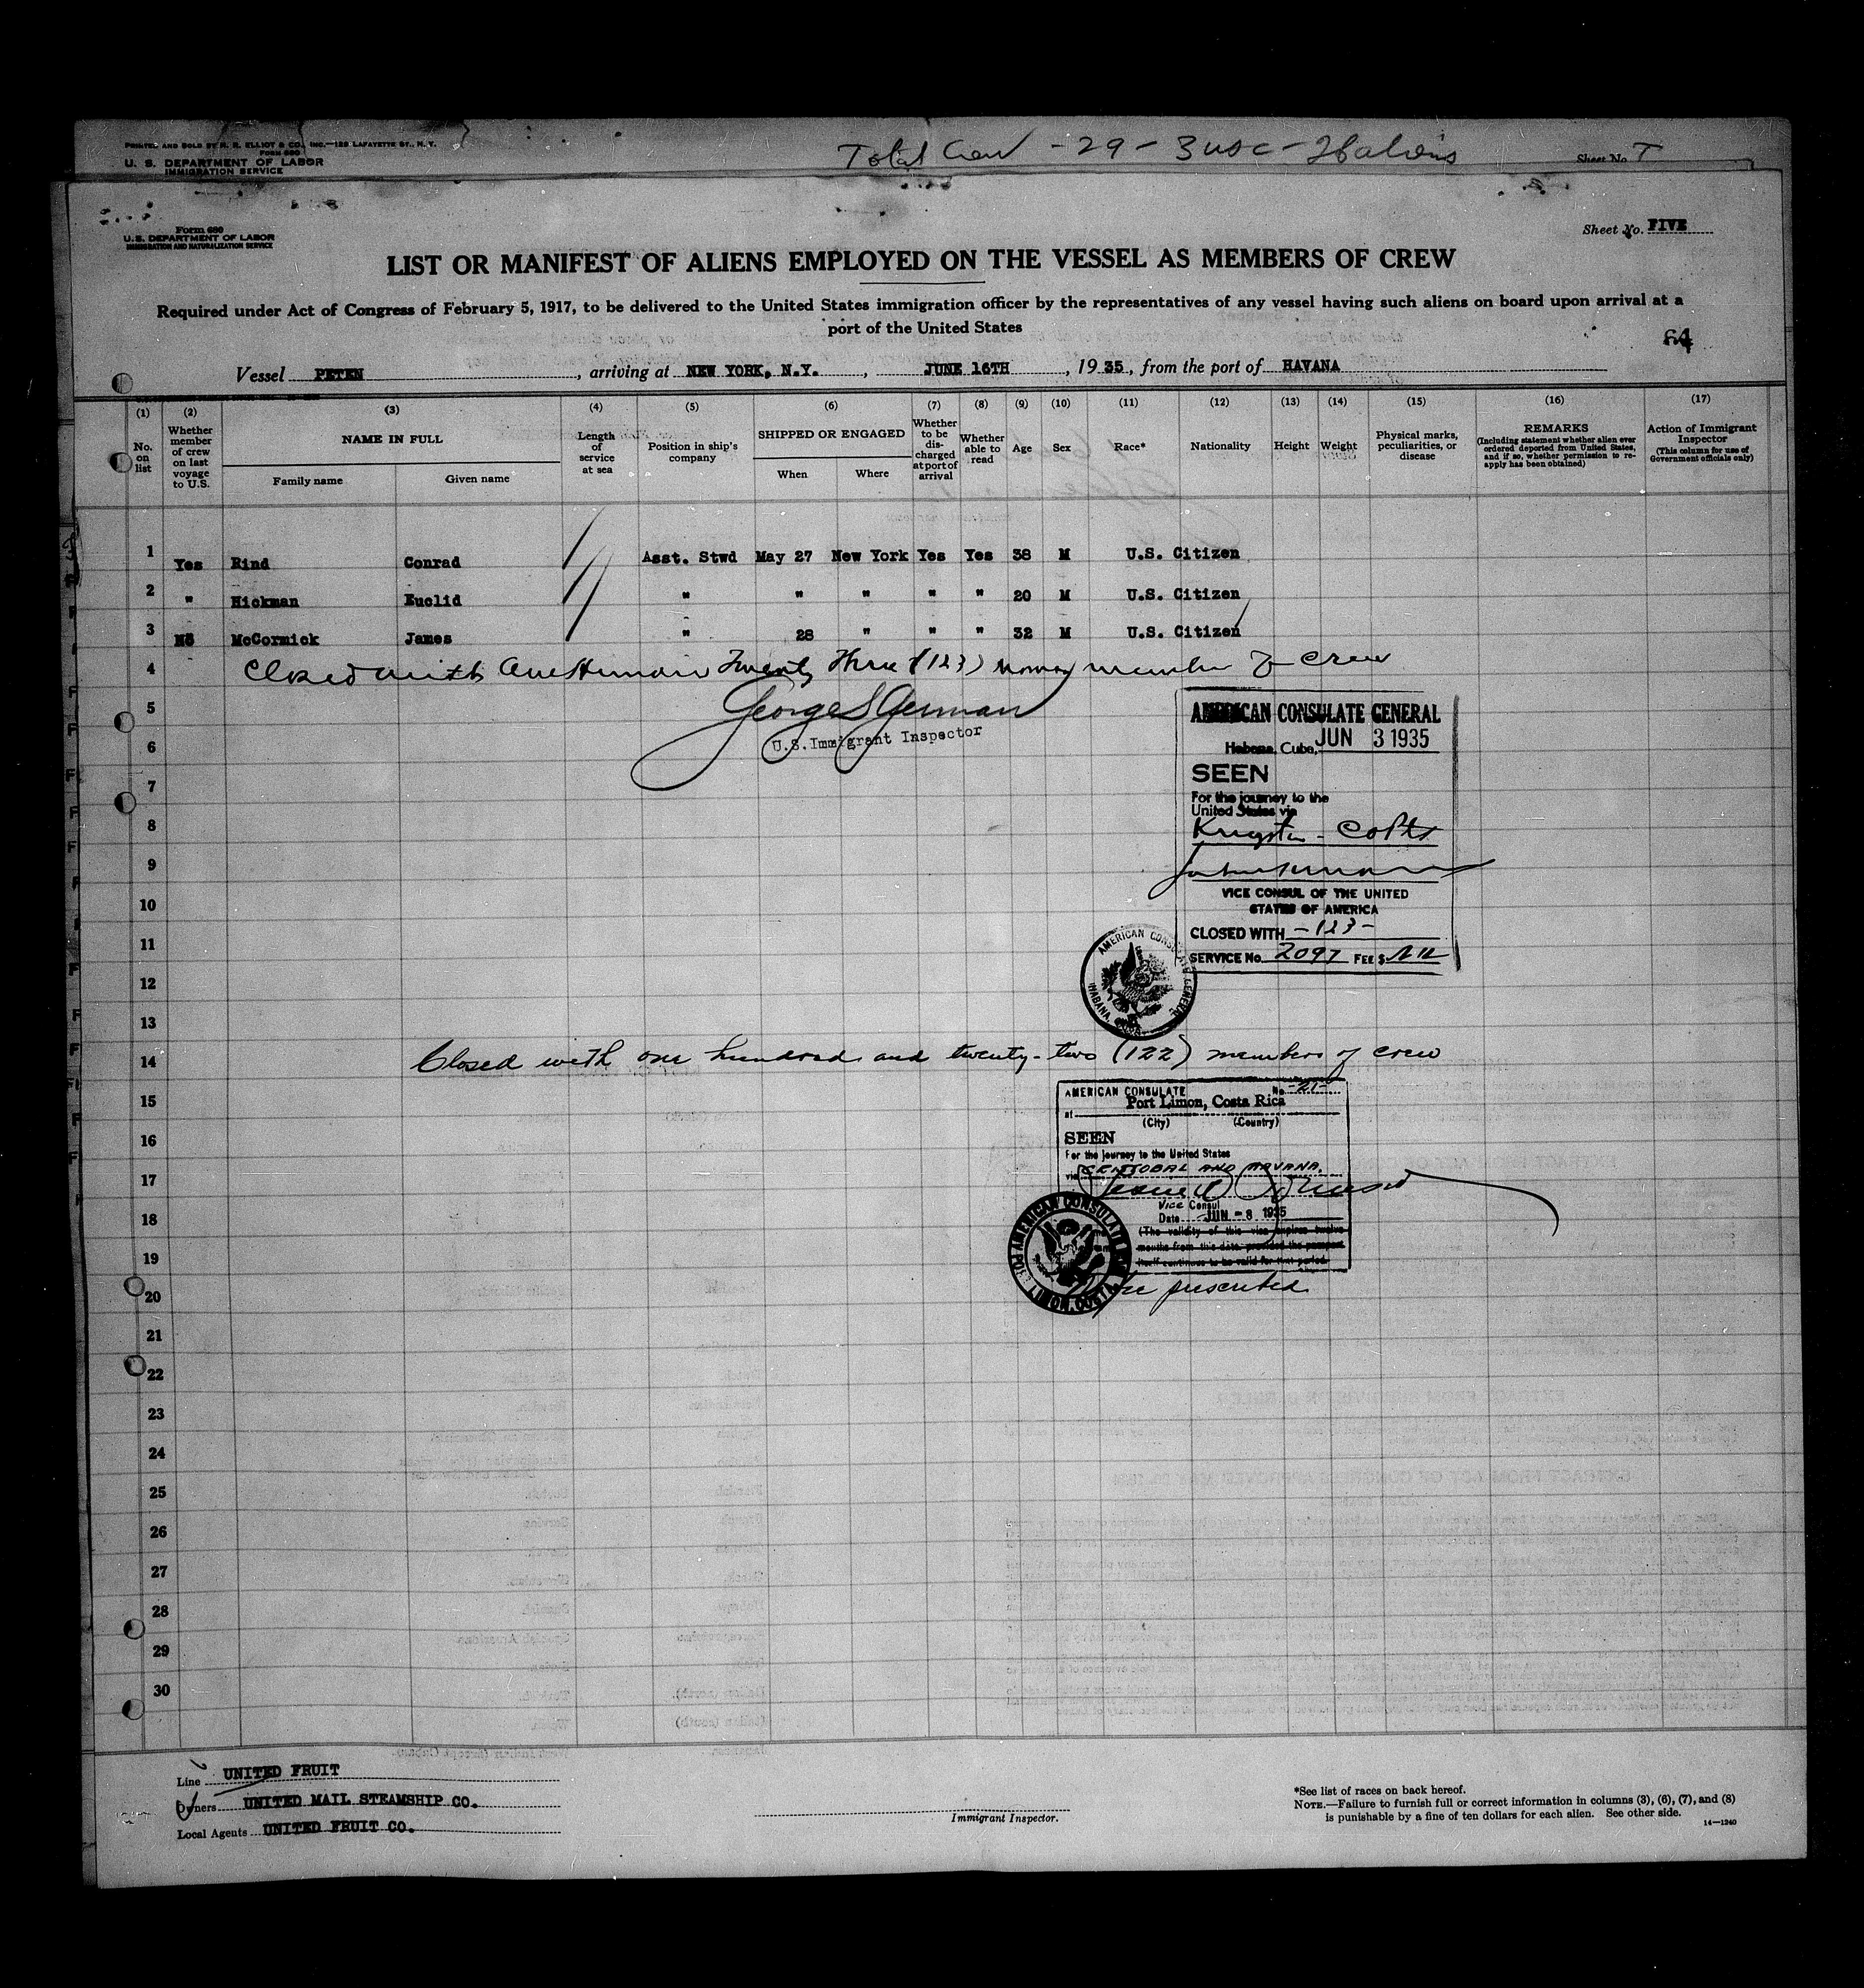 PRINTED AND SOLD BY R. R. ELLIOT & CO., INC.—129 LAFAYETTE ST., N. Y.
FORM 680
U. S. DEPARTMENT OF LABOR
IMMIGRATION SERVICE
Total Crew - 29 - 3 USC - 26 aliens
Sheet No.
Form 680
U.S. DEPARTMENT OF LABOR
IMMIGRATION AND NATURALIZATION SERVICE
Sheet No. FIVE
LIST OR MANIFEST OF ALIENS EMPLOYED ON THE VESSEL AS MEMBERS OF CREW
Required under Act of Congress of February 5, 1917, to be delivered to the United States immigration officer by the representatives of any vessel having such aliens on board upon arrival at a
port of the United States
64
Vessel PETEN, arriving at NEW YORK, N.Y., JUNE 16TH, 1935, from the port of HAVANA
(1) (2) (3) (4) (5) (6) (7) (8) (9) (10) (11) (12) (13) (14) (15) (16) (17)
No. on list
Whether member of crew on last voyage to U.S.
NAME IN FULL
Family name Given name
Length of service at sea
Position in ship's company
SHIPPED OR ENGAGED
When Where
Whether to be discharged at port of arrival
Whether able to read
Age
Sex
Race*
Nationality
Height
Weight
Physical marks, peculiarities, or disease
REMARKS
(Including statement whether alien ever ordered deported from United States, and if so, whether permission to reapply has been obtained)
Action of Immigrant Inspector
(This column for use of Government officials only)
1 Yes Rind Conrad Asst. Stwd May 27 New York Yes Yes 38 M U.S. Citizen
2 " Hickman Euclid " " " " " 20 M U.S. Citizen
3 McCormick James " 28 " " " 32 M U.S. Citizen
4 Closed with One Hundred Twenty Three (123) member of crew
5 George S German
6 U.S. Immigrant Inspector
7
8
9
10
11
12
13
AMERICAN CONSULATE GENERAL
Habana, Cuba, JUN 3 1935
SEEN
For the journey to the
United States via
Kingston -
VICE CONSUL OF THE UNITED
STATES OF AMERICA
CLOSED WITH -123-
SERVICE No. 2097 FEE $
AMERICAN CONSULATE GENERAL
HABANA, CUBA
14 Closed with one hundred and twenty-two (122) members of crew
15
16
17
18
19
20
AMERICAN CONSULATE No. -21-
at Port Limon, Costa Rica
(City) (Country)
SEEN
For the journey to the United States
via CRISTOBAL AND HAVANA.
Vice Consul
Date JUN - 8 1935
(The validity of this visa expires twelve
months from this date provided the passport
itself continues to be valid for that period.
AMERICAN CONSULATE
presented
21
22
23
24
25
26
27
28
29
30
Line UNITED FRUIT
Owners UNITED MAIL STEAMSHIP CO.
Local Agents UNITED FRUIT CO.
Immigrant Inspector.
*See list of races on back hereof.
NOTE.—Failure to furnish full or correct information in columns (3), (6), (7), and (8)
is punishable by a fine of ten dollars for each alien. See other side.
14—1240